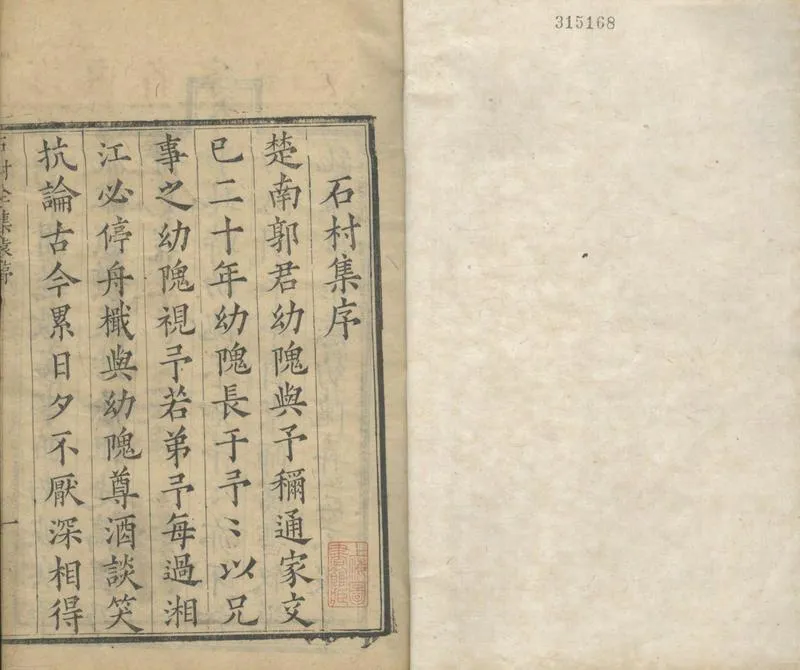 315168
石村集序
楚南郭君幼隗與予稱通家文
已二十年幼隗長于予〻以兄
事之幼隗視予若弟予每過湘
江必停舟檥與幼隗尊酒談笑
抗論古今累日夕不厭深相得